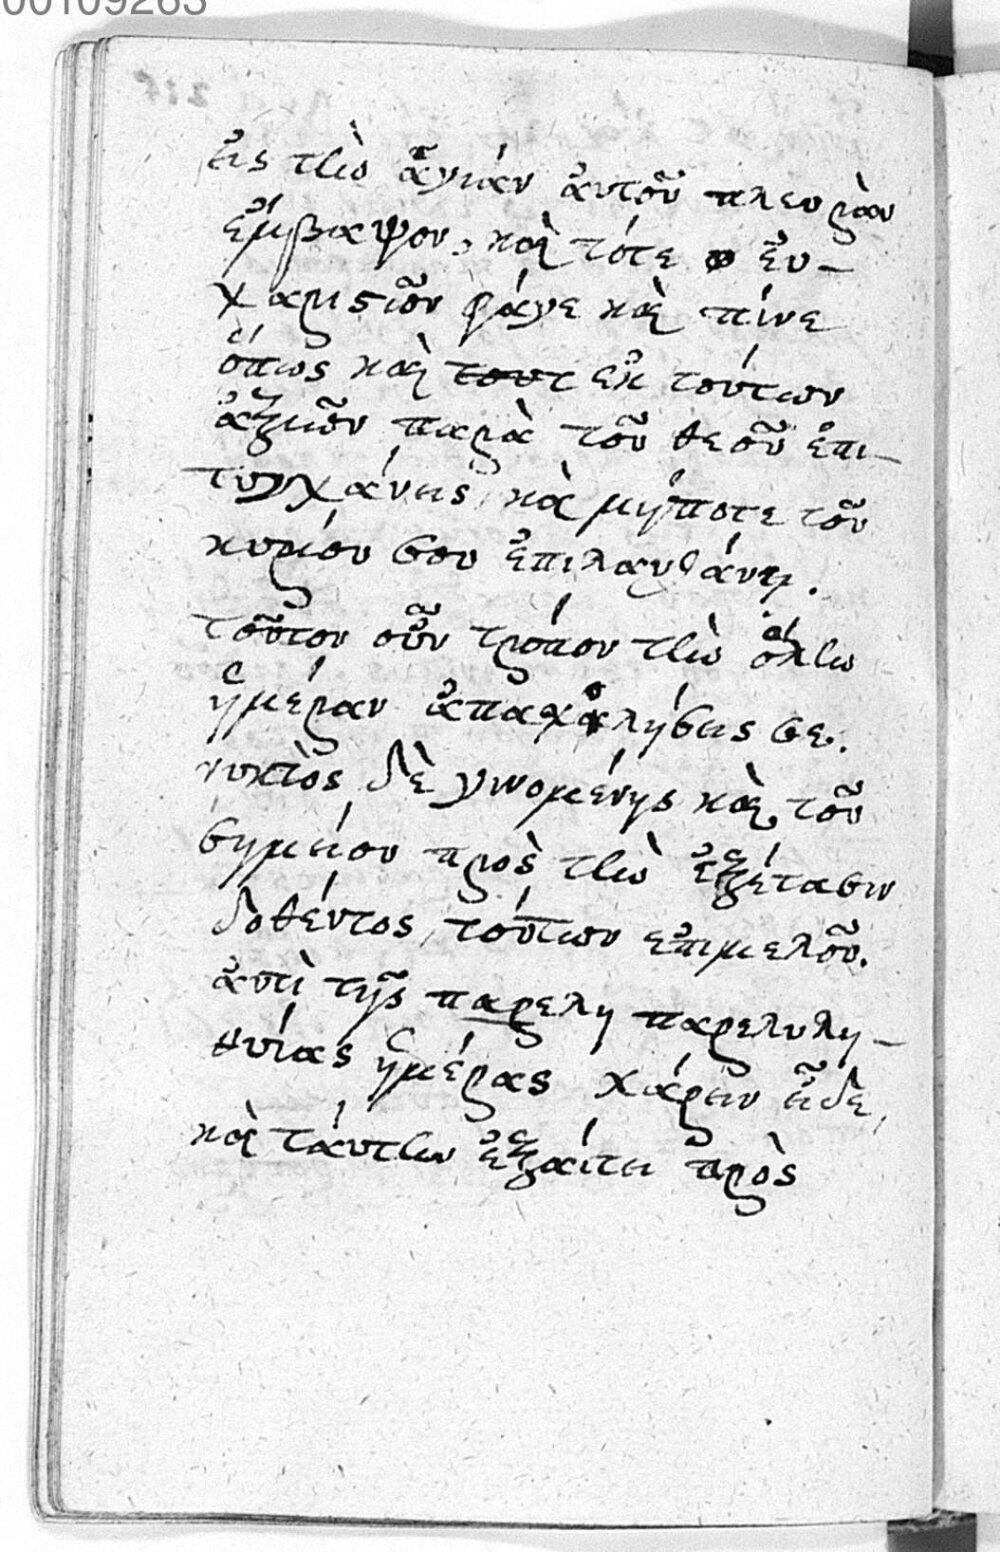 00109263
εἰς τὴν ἁγίαν ἀυτοῦ πλευρὰν
ἔμβαψον, καὶ τότε ἐυ-
χαριστῶν φάγε καὶ πίνε
ὅπως καὶ τουτ ἐκ τούτων
ἀξιῶν παρὰ τοῦ θεοῦ ἐπι-
τυγχάνεις, καὶ μήποτε τοῦ
κυρίου σου ἐπιλανθάνῃ.
τοῦτον οὖν τρόπον τὴν ὅλην
ἡμέραν ἀπασχολήσεις σε.
νυκτὸς δὲ γινομένης καὶ τοῦ
σημείου πρὸς τὴν ἐξέτασιν
δοθέντος, τούτων ἐπιμελοῦ.
ἀντὶ τῆς παρελη παρελυλη-
θυίας ἡμέρας χάριν εἶδε,
καὶ τάυτην ἐξαίτει πρὸς